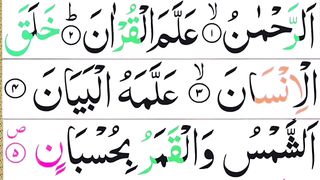 اَلرَّحْمٰنُ ۙ﴿۱﴾ عَلَّمَ الْقُرْاٰنَ ؕ﴿۲﴾ خَلَقَ
الْاِنْسَانَ ۙ﴿۳﴾ عَلَّمَهُ الْبَيَانَ ﴿۴﴾
اَلشَّمْسُ وَالْقَمَرُ بِحُسْبَانٍ ۪ص﴿۵﴾